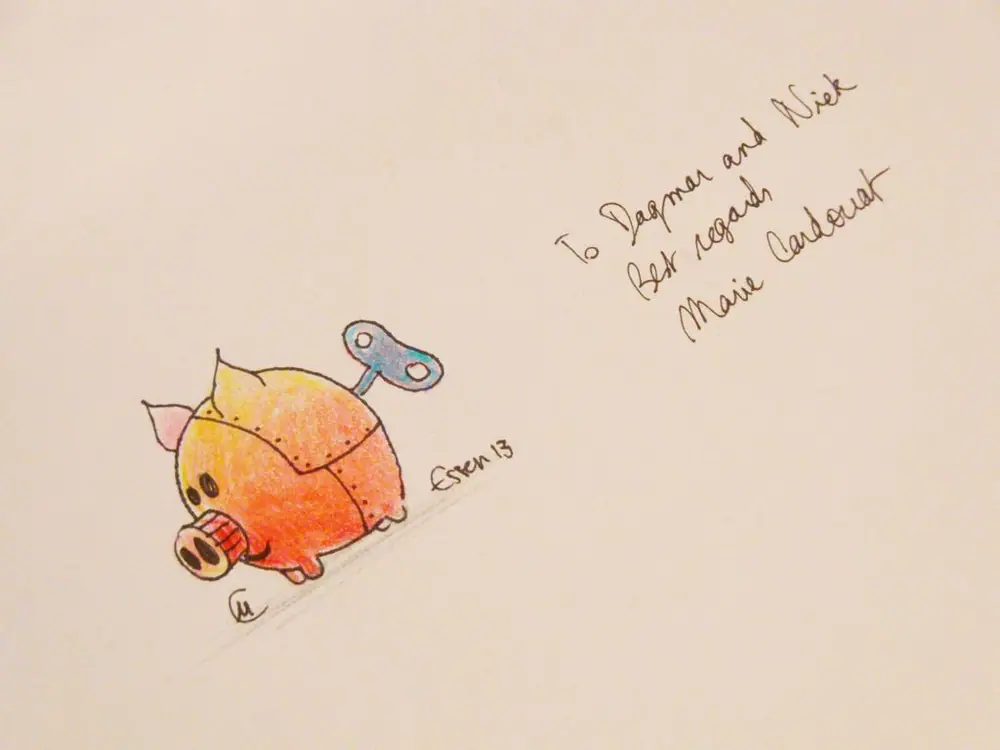 To Dagmar and Niek
Best regards
Marie Cardouat
Essen 13